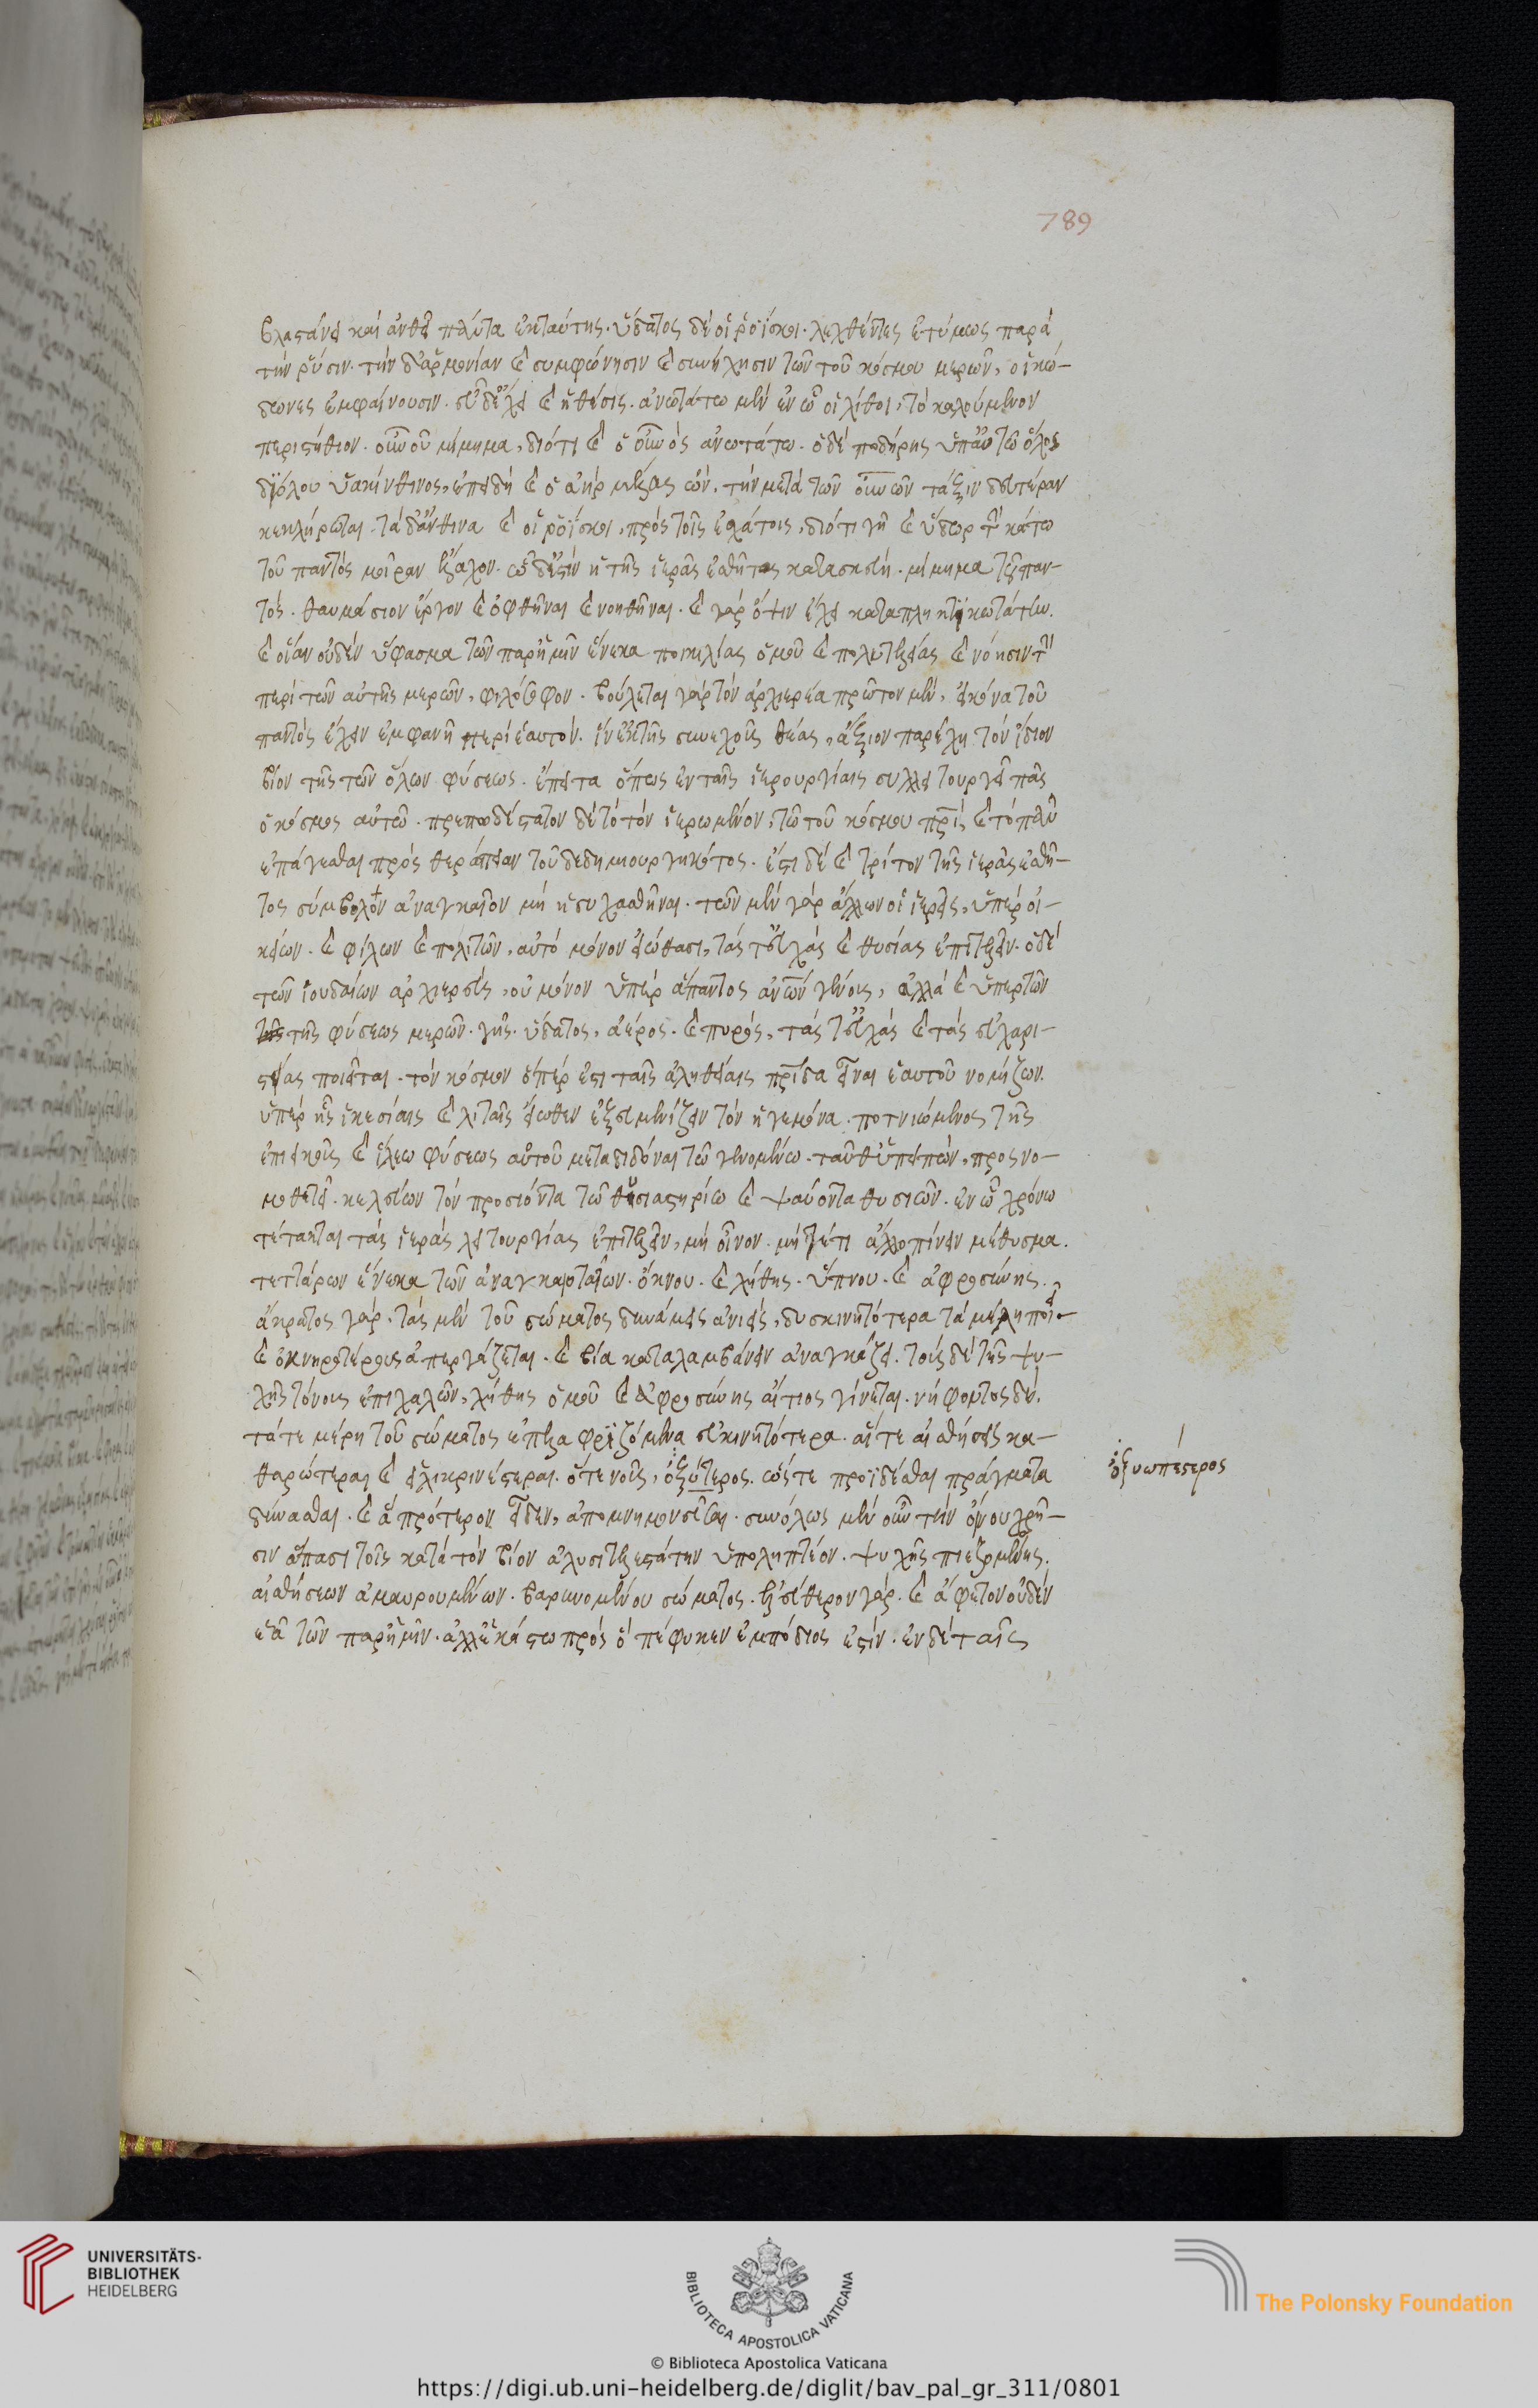 789
βλαστάνει καὶ ἀνθεῖ πάντα ἐκ ταύτης. ὕδατος δὲ οἱ ῥοΐσκοι. λεχθέντες ἐτύμως παρὰ
τὴν ῥύσιν. τὴν δ' ἁρμονίαν καὶ συμφώνησιν καὶ συνήχησιν τῶν τοῦ κόσμου μερῶν, οἱ κώ-
δωνες ἐμφαίνουσιν. εὖ δ' ἔχει καὶ ἡ θέσις. ἀνωτάτω μὲν ἐν ᾧ οἱ λίθοι, τὸ καλούμενον
περιστήθιον. οὐνοῦ μίμημα, διότι καὶ ὁ οὐνὸς ἀνωτάτω. ὁ δὲ ποδήρης ὑπ' αὐτῷ ὅλος
δι' ὅλου ὑακίνθινος, ἐπειδὴ καὶ ὁ ἀὴρ μέλας ὢν, τὴν μετὰ τῶν οὐνῶν τάξιν δευτέραν
κεκλήρωται. τὰ δ' ἄνθινα καὶ οἱ ῥοΐσκοι, πρὸς τοῖς ἐσχάτοις, διότι γῆ καὶ ὕδωρ τὴν κάτω
τοῦ παντὸς μοῖραν ἔλαχον. ὧδ' ἐστὶν ἡ τῆς ἱερᾶς ἐσθῆτος κατασκευή. μίμημα τοῦ παν-
τός. θαυμάσιον ἔργον καὶ ὀφθῆναι καὶ νοηθῆναι. καὶ γὰρ ὄψιν ἔχει καταπληκτικωτάτην.
καὶ οἵαν οὐδὲν ὕφασμα τῶν παρ' ἡμῖν ἕνεκα ποικιλίας ὁμοῦ καὶ πολυτελείας καὶ νόησιν τὴν
περὶ τῶν αὐτῆς μερῶν, φιλόσοφον. βούλεται γὰρ τὸν ἀρχιερέα πρῶτον μὲν, εἰκόνα τοῦ
παντὸς ἔχειν ἐμφανῆ περὶ ἑαυτόν. ἵν' ἐκ τῆς συνεχοῦς θέας, ἄξιον παρέχῃ τὸν ἴδιον
βίον τῆς τῶν ὅλων φύσεως. ἔπειτα ὅπως ἐν ταῖς ἱερουργίαις συλλειτουργεῖ πᾶς
ὁ κόσμος αὐτῷ. πρεπωδέστατον δὲ τὸ τὸν ἱερωμένον, τῷ τοῦ κόσμου πρὶ, καὶ τὸ πᾶν
ἐπάγεσθαι πρὸς θεράπειαν τοῦ δεδημιουργηκότος. ἔστι δὲ καὶ τρίτον τῆς ἱερᾶς ἐσθῆ-
τος σύμβολον ἀναγκαῖον μὴ ἡσυχασθῆναι. τῶν μὲν γὰρ ἄλλων οἱ ἱερεῖς, ὑπὲρ οἰ-
κείων. καὶ φίλων καὶ πολιτῶν, αὐτὸ μόνον εἰώθασι, τάς τ' εὐχὰς καὶ θυσίας ἐπιτελεῖν. ὁ δὲ
τῶν ἰουδαίων ἀρχιερεὺς, οὐ μόνον ὑπὲρ ἅπαντος ἀνων γένους, ἀλλὰ καὶ ὑπὲρ τῶν
τῆς φύσεως μερῶν. γῆς. ὕδατος, ἀέρος. καὶ πυρός, τάς τ' εὐχὰς καὶ τὰς εὐχαρι-
στίας ποιεῖται. τὸν κόσμον ὅπερ ἐστι ταῖς ἀληθείαις πρίδα εἶναι ἑαυτοῦ νομίζων.
ὑπὲρ ἧς ἱκεσίαις καὶ λιταῖς εἴωθεν ἐξευμενίζειν τὸν ἡγεμόνα. ποτνιώμενος τῆς
ἐπιεικοῦς καὶ ἵλεω φύσεως αὐτοῦ μεταδιδόναι τῷ γενομένῳ. ταῦθ' ὑπειπὼν, προσνο-
μοθετεῖ. κελεύων τὸν προσιόντα τῷ θυσιαστηρίῳ καὶ ψαύοντα θυσιῶν. ἐν ᾧ χρόνῳ
τέτακται τὰς ἱερὰς λειτουργίας ἐπιτελεῖν, μὴ οἶνον. μή γέ τι ἄλλο πίνειν μέθυσμα.
τεττάρων ἕνεκα τῶν ἀναγκαιοτάτων. ὄκνου. καὶ λήθης. ὕπνου. καὶ ἀφροσύνης.
ἄκρατος γὰρ, τὰς μὲν τοῦ σώματος δυνάμεις ἀνιεὶς, δυσκινητότερα τὰ μέλη ποιεῖ
καὶ ὀκνηροτέρους ἀπεργάζεται. καὶ βίᾳ καταλαμβάνειν ἀναγκάζει. τοὺς δὲ τῆς ψυ-
χῆς τόνους ἐπιχαλῶν, λήθης ὁμοῦ καὶ ἀφροσύνης αἴτιος γίνεται. νήφοντος δὲ.
τά τε μέρη τοῦ σώματος ἐπελαφριζόμενα εὐκινητότερα. αἵ τε αἰσθήσεις κα-
θαρώτεραι καὶ εἰλικρινέστεραι. ὅ τε νοῦς, ὀξύτερος. ὥστε προϊδέσθαι πράγματα
δύνασθαι. καὶ ἃ πρότερον εἶδεν, ἀπομνημονεῦσαι. συνόλως μὲν οὖν τὴν οἴνου χρῆ-
σιν ἅπασι τοῖς κατὰ τὸν βίον ἀλυσιτελεστάτην ὑποληπτέον. ψυχῆς πιεζομένης.
αἰσθήσεων ἀμαυρουμένων. βαρυνομένου σώματος. ἐλεύθερον γὰρ. καὶ ἄφετον οὐδὲν
ἐᾷ τῶν παρ' ἡμῖν. ἀλλ' ἑκάστῳ πρὸς ὃ πέφυκεν ἐμπόδιος ἐστίν. ἐν δὲ ταῖς
ὀξυωπέστερος
UNIVERSITÄTS-
BIBLIOTHEK
HEIDELBERG
BIBLIOTECA APOSTOLICA VATICANA
The Polonsky Foundation
© Biblioteca Apostolica Vaticana
https://digi.ub.uni-heidelberg.de/diglit/bav_pal_gr_311/0801